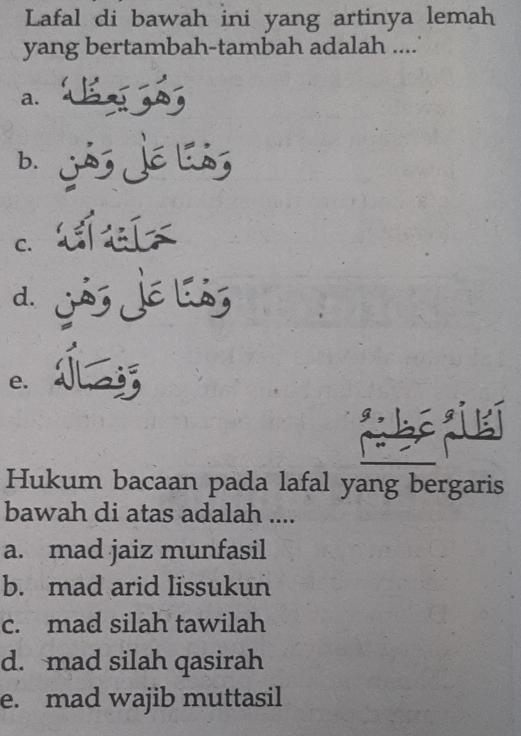 Lafal di bawah ini yang artinya lemah
yang bertambah-tambah adalah ....
a. وَهُوَ يَعِظُهُ
b. وَهْنًا عَلٰى وَهْنٍ
c. حَمَلَتْهُ أُمُّهُ
d. وَهْنًا عَلٰى وَهْنٍ
e. وَفِصَالُهُ
لَظُلْمٌ عَظِيْمٌ
Hukum bacaan pada lafal yang bergaris
bawah di atas adalah ....
a. mad jaiz munfasil
b. mad arid lissukun
c. mad silah tawilah
d. mad silah qasirah
e. mad wajib muttasil